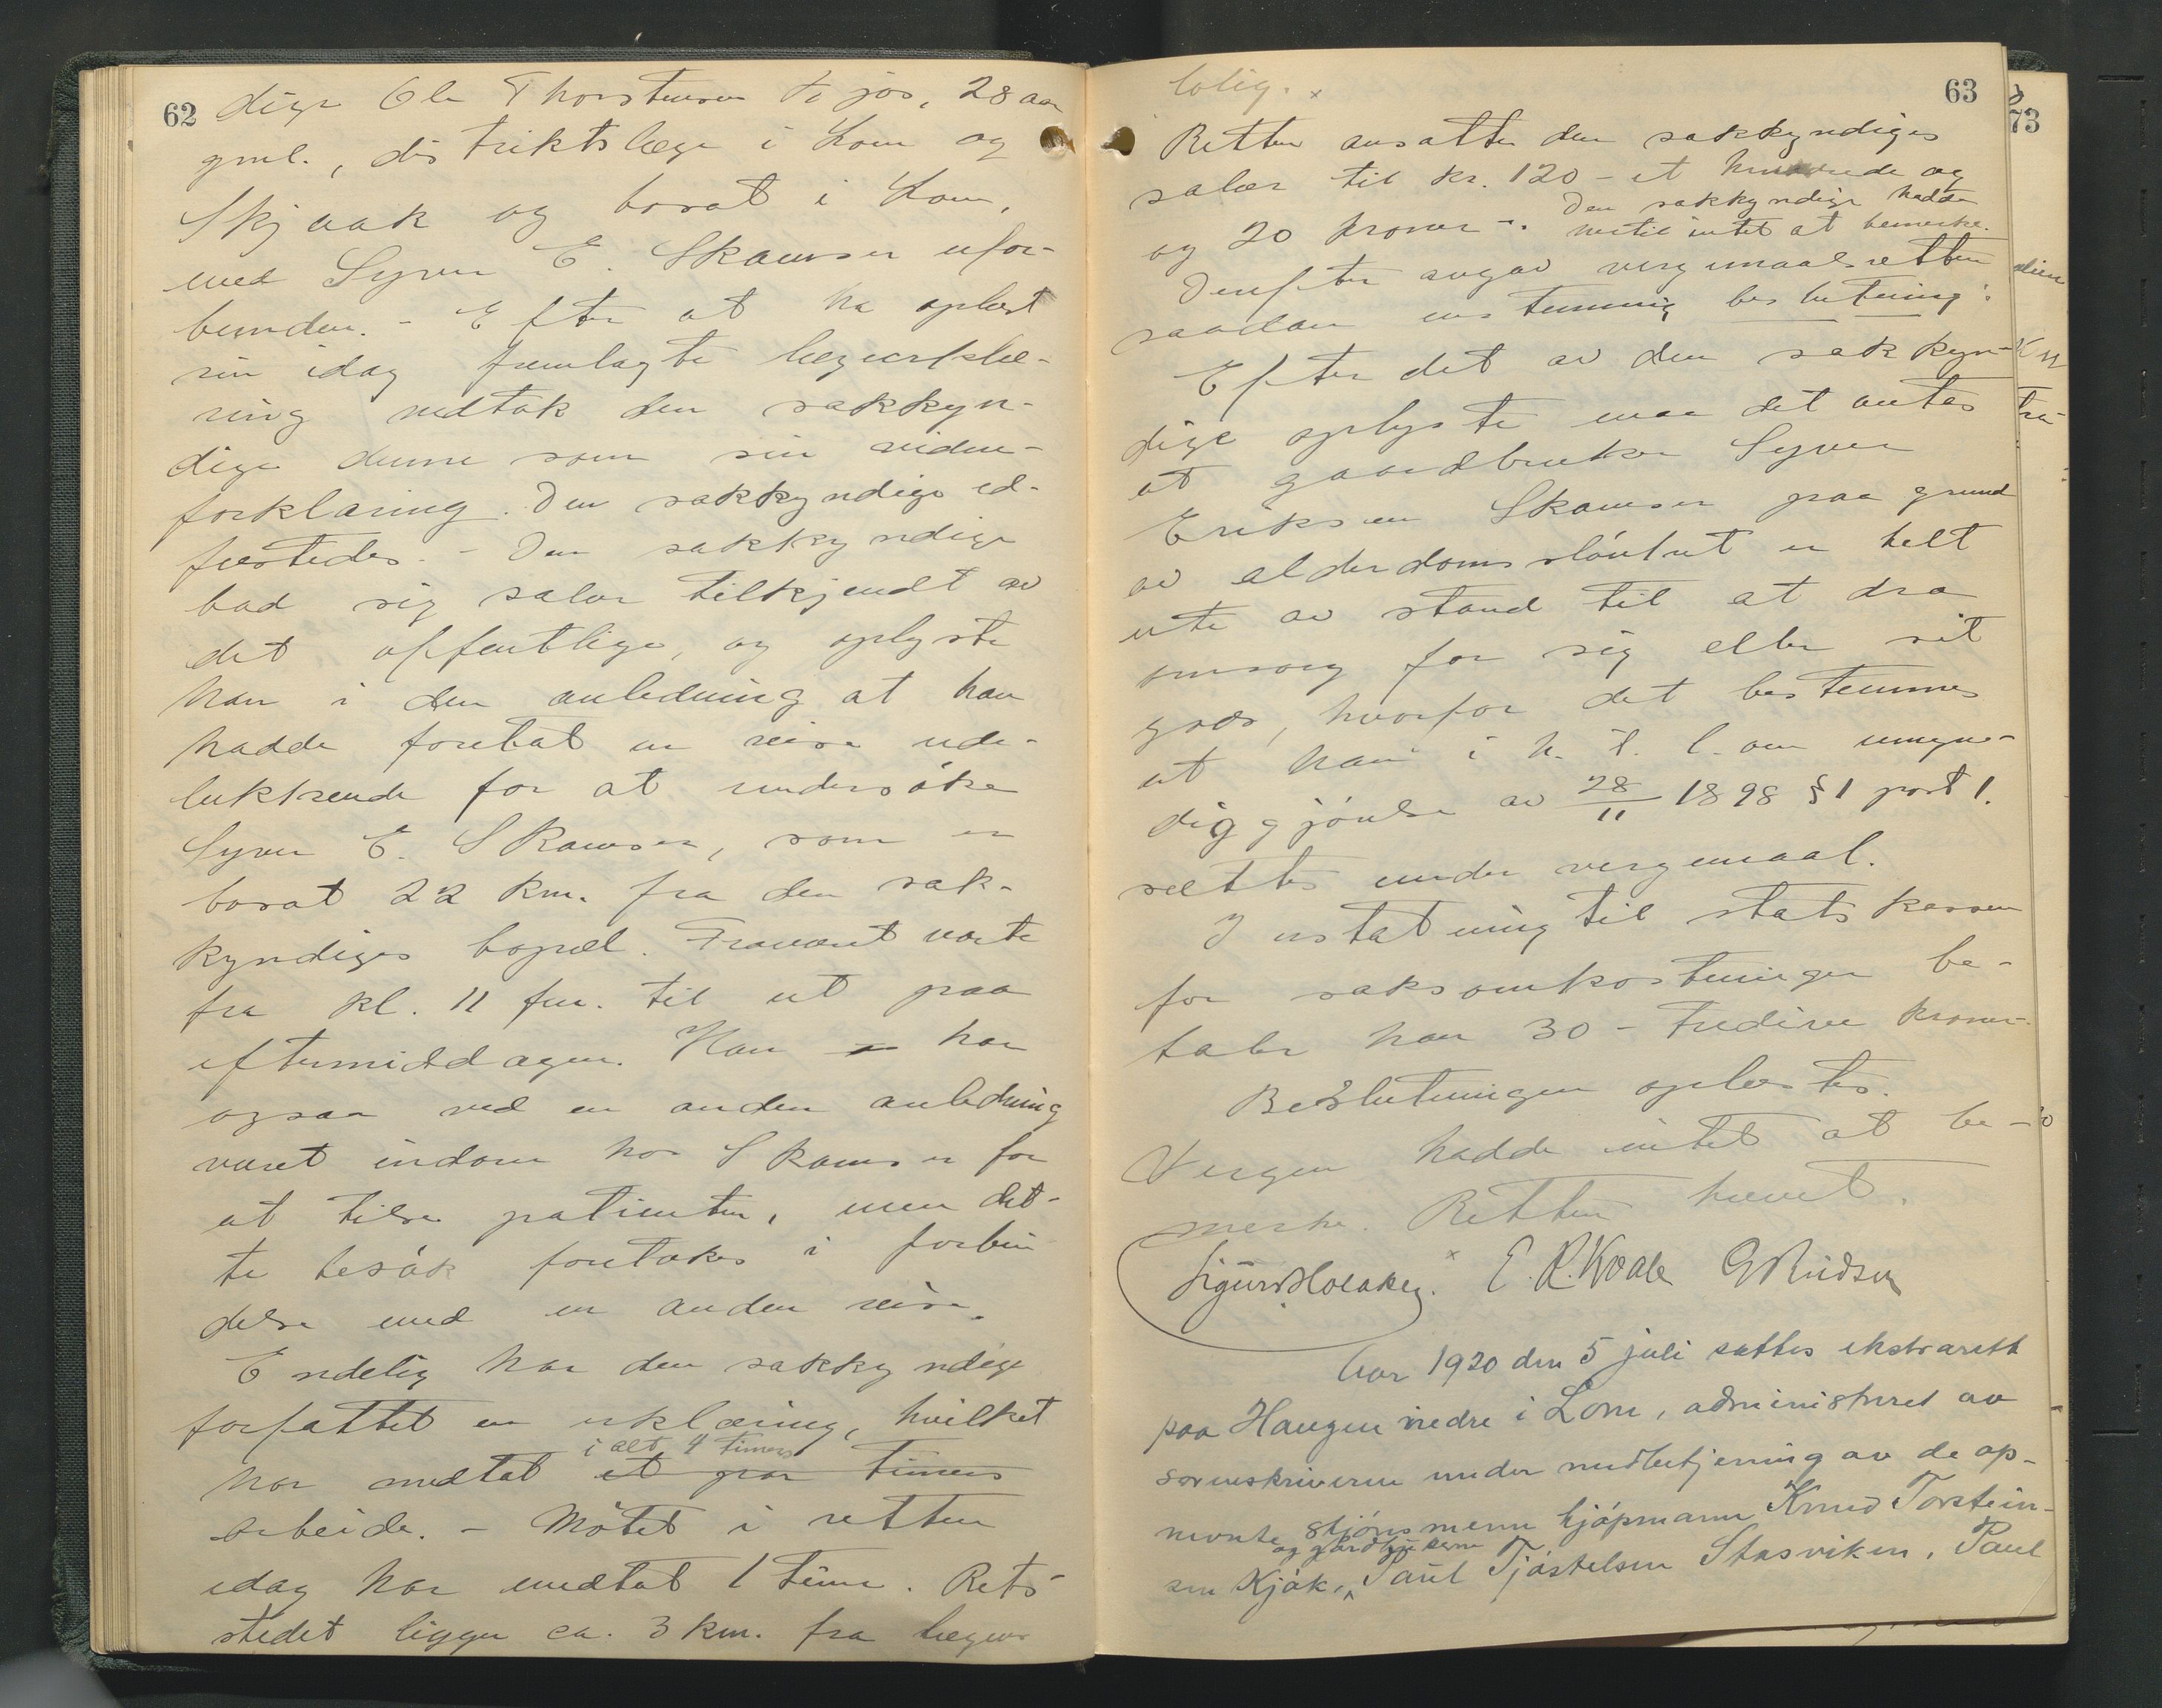 62
dige Ole Thorstensen Tejös, 28 aar
gml., distriktslæge i Lom og
Skjaak og bosat i Lom,
med Syver E. Skamser ufor-
bunden. - Efter at ha oplæst
sin idag fremlagte lægeerklæ-
ring vedtok den sakkyn-
dige denne som sin vidne-
forklaring. Den sakkyndige ed-
fæstedes. - Den sakkyndige
bad sig salær tilkjendt av
det offentlige, og oplyste
han i den anledning at han
hadde foretat en reise ude-
lukkende for at undersöke
Syver E. Skamser, som er
bosat 22 km. fra den sak-
kyndiges bopæl. Fraværet varte
fra kl. 11 fm. til ut paa
eftermiddagen. Han har
ogsaa ved en anden anledning
været indom hos Skamser for
at tilse patienten, men det-
te besök foretokes i forbin
delse med en anden reise.
Endelig har den sakkyndige
forfattet en erklæring, hvilket
i alt 4 timers
har medtat et par timers
arbeide. - Mötet i retten
idag har medtat 1 time. Rets-
stedet ligger ca. 3 km. fra lægens
63
bolig. x
Retten ansatte den sakkyndiges
salær til kr. 120 - et hundrede og
og 20 kroner -. Den sakkyndige hadde
hertil intet at bemerke.
Derefter avgav vergemaalsretten
saadan enstemmig beslutning:
Efter det av den sakkyn-
dige oplyste maa det antas
at gaardbruker Syver
Eriksen Skamser paa grund
av alderdomsslövhet er helt
ute av stand til at dra
omsorg for sig eller sit
gods, hvorfor det bestemmes
at han i h. t. l. om umyn-
diggjörelse av 28/11 1898 § 1 post 1.
sættes under vergemaal.
I erstatning til statskassen
for saksomkostninger be-
taler han 30 - tredive kroner-
Beslutningen oplæstes.
Vergen hadde intet at be-
merke. Retten hævet.
Sigurd Hoeaker. x E. R. Kvale G Knudsen
Aar 1920 den 5 juli sattes ekstrarett
paa Haugen nedre i Lom, administreret av
sorenskriveren under medbetjening av de op-
nevnte skjönsmenn kjöpmann Knud Torstein-
og gardbrukerne
sen Kjök, Paul Tjöstelsen Stasviken, Paul
73